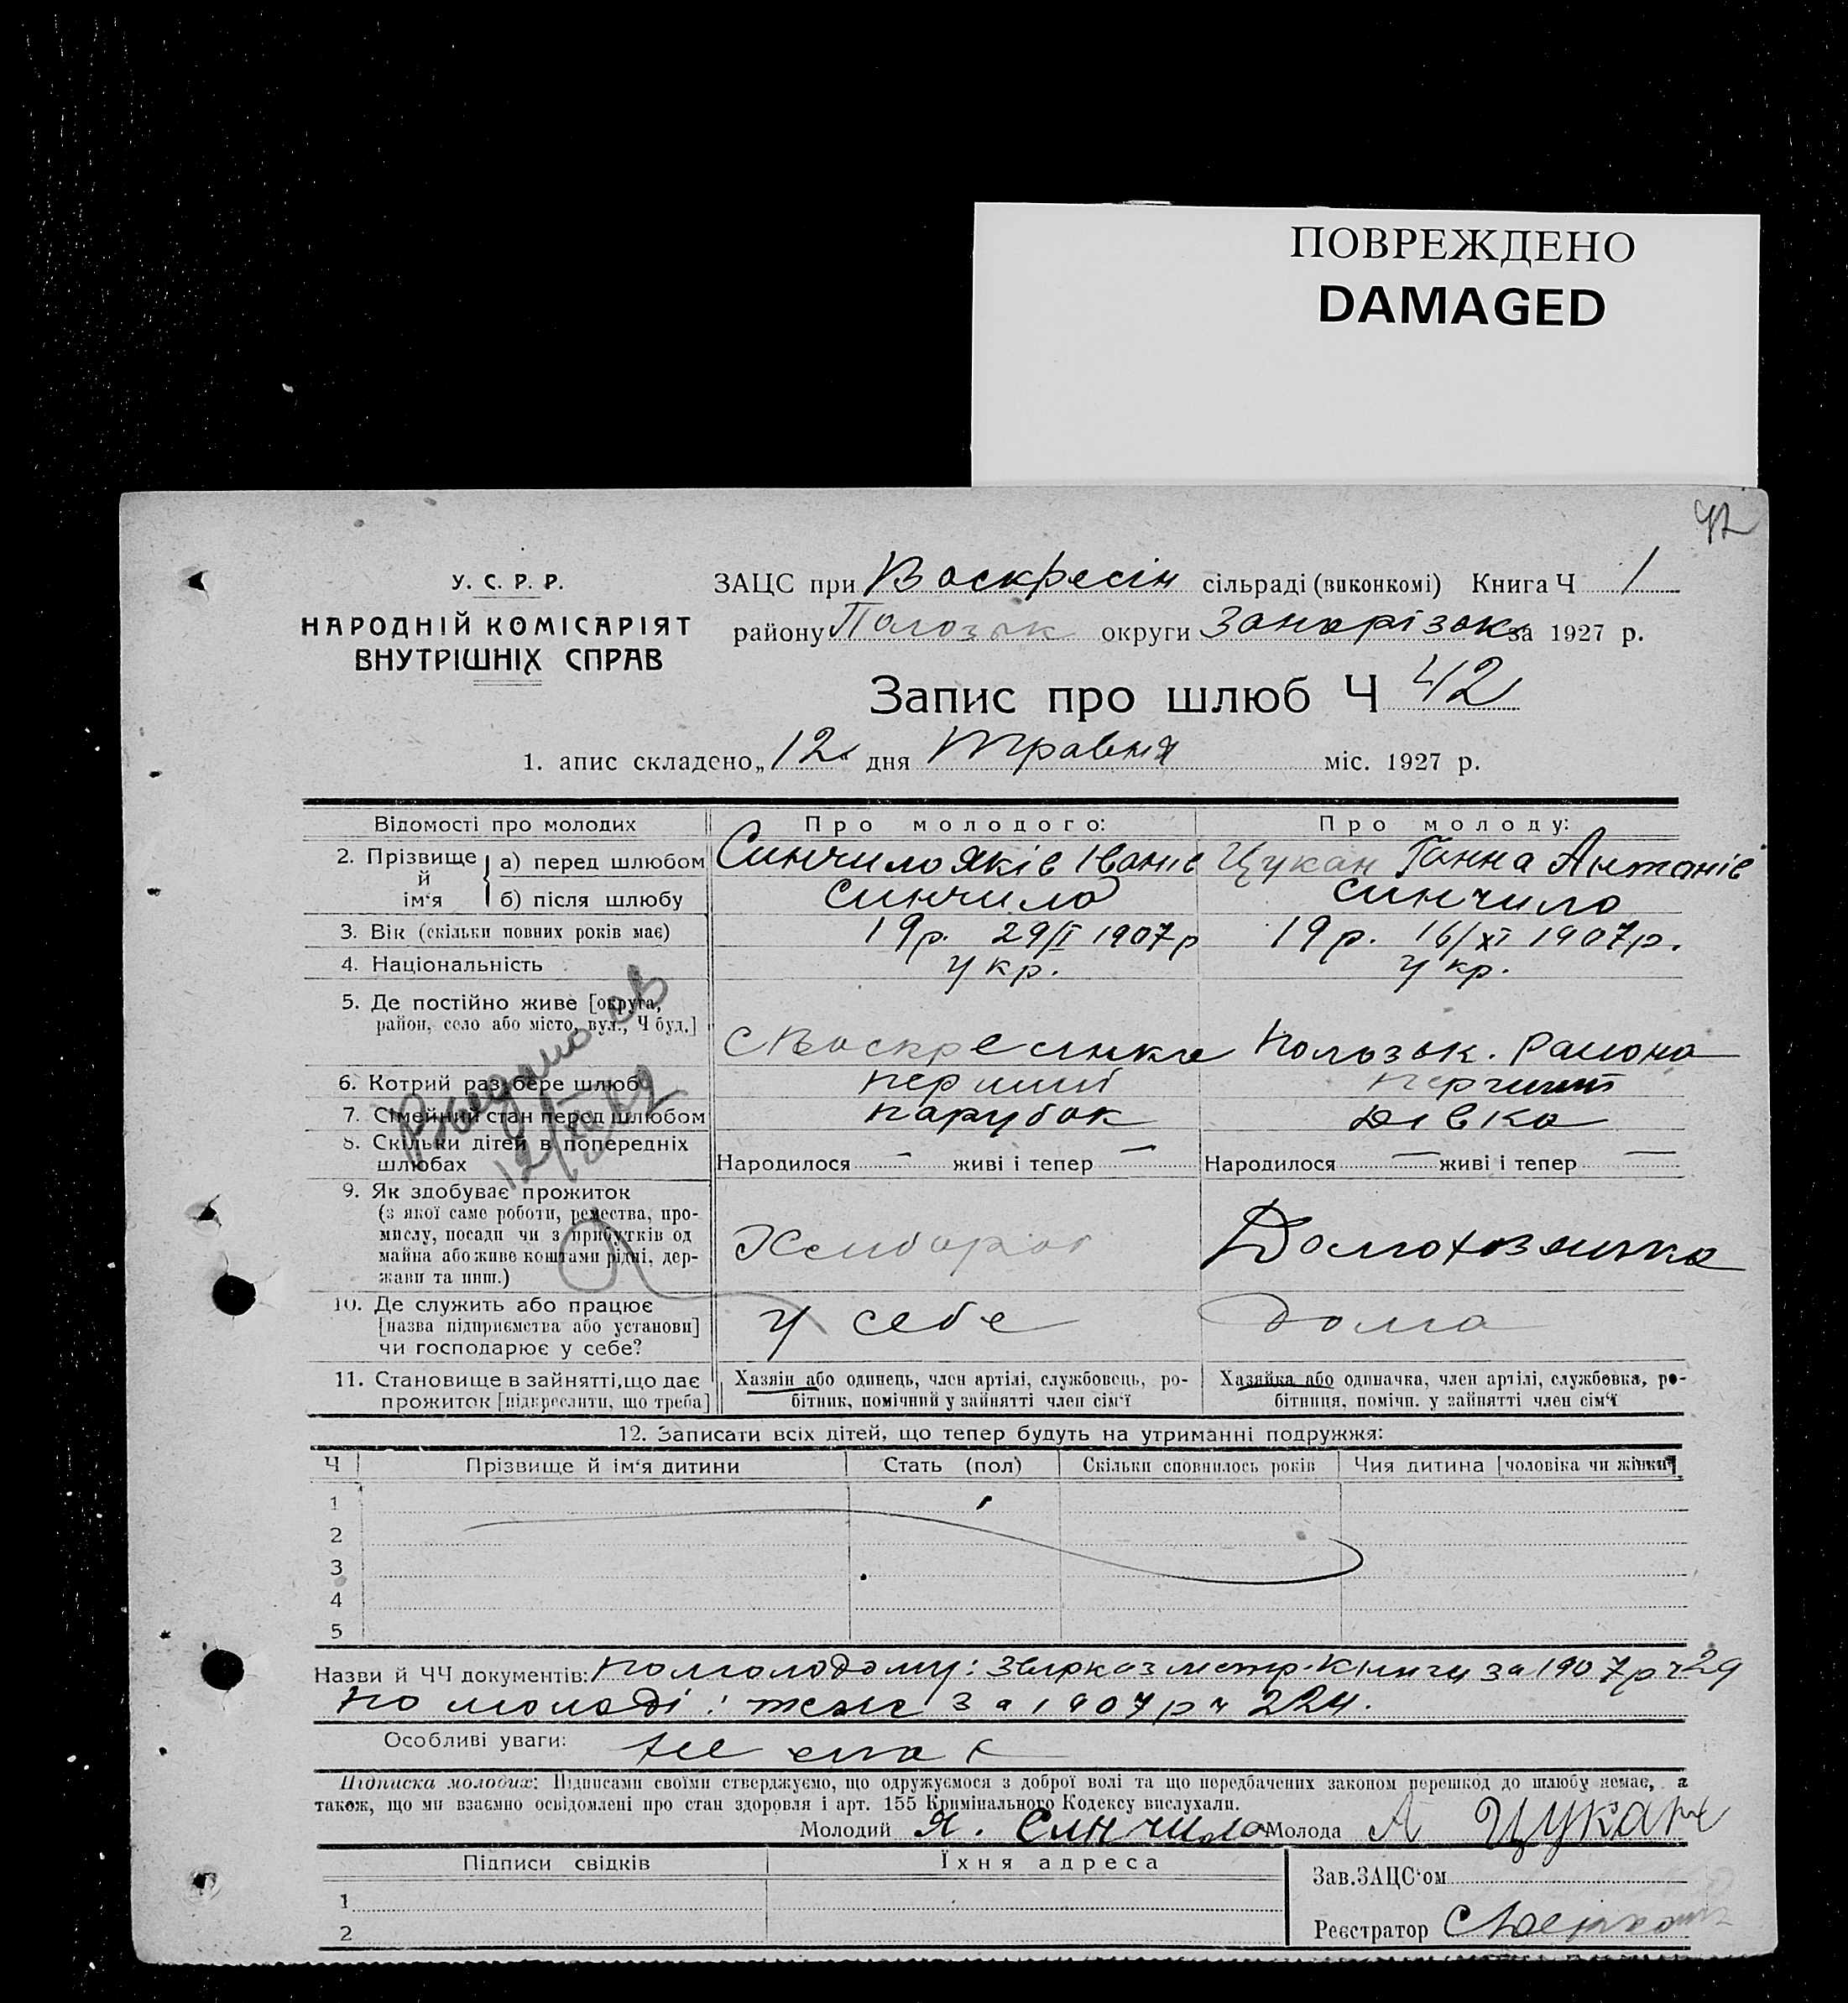 ПОВРЕЖДЕНО
DAMAGED
42
У. С. Р. Р.
НАРОДНІЙ КОМІСАРІЯТ
ВНУТРІШНІХ СПРАВ
ЗАЦС при Воскресін сільраді (виконкомі) Книга Ч 1
району Полозьк округи Запорізок за 1927 р.
Запис про шлюб Ч 42
1. апис складено „12 дня травня міс. 1927 р.
Відомості про молодих Про молодого: Про молоду:
2. Прізвище й ім‘я а) перед шлюбом Синчило Яків Іванів Цукан Ганна Антонів
б) після шлюбу Синчило Синчило
3. Вік (скільки повних років має) 19р. 29/I 1907р 19р. 16/XI 1907р.
4. Національність укр. укр.
5. Де постійно живе [округа,
район, село або місто, вул., Ч буд.] с Воскресенка Полозьк. района
6. Котрий раз бере шлюб перший перший
7. Сімейний стан перед шлюбом парубок дівка
8. Скільки дітей в попередніх
шлюбах Народилося — живі і тепер — Народилося — живі і тепер —
9. Як здобуває прожиток
(з якої саме роботи, ремества, про-
мислу, посади чи з прибутків од
майна або живе коштами рідні, дер-
жави та инш.) Хлибороб Домохозяика
10. Де служить або працює
[назва підприємства або установи]
чи господарює у себе? у себе дома
11. Становище в зайнятті, що дає
прожиток [підкреслити, що треба]
Хазяїн або одинець, член артілі, службовець, ро-
бітник, помічний у зайнятті член сім‘ї
Хазяйка або одиначка, член артілі, службовка, ро-
бітниця, помічн. у зайнятті член сім‘ї
12. Записати всіх дітей, що тепер будуть на утриманні подружжя:
Ч Прізвище й ім‘я дитини Стать (пол) Скільки сповнилось років Чия дитина [чоловіка чи жінки]
1
2
3
4
5
Назви й ЧЧ документів: по молодому: метр. Книги за 1907р ч 29
по молоді: теж за 1907р ч 224.
Особливі уваги: немає
Підписка молодих: Підписами своїми стверджуємо, що одружуємося з доброї волі та що передбачених законом перешкод до шлюбу немає, а
також, що ми взаємно освідомлені про стан здоровля і арт. 155 Кримінального Кодексу вислухали.
Молодий Я. Синчило Молода А Цукан
Підписи свідків Їхня адреса
1
2
Зав.ЗАЦС‘ом
Реєстратор